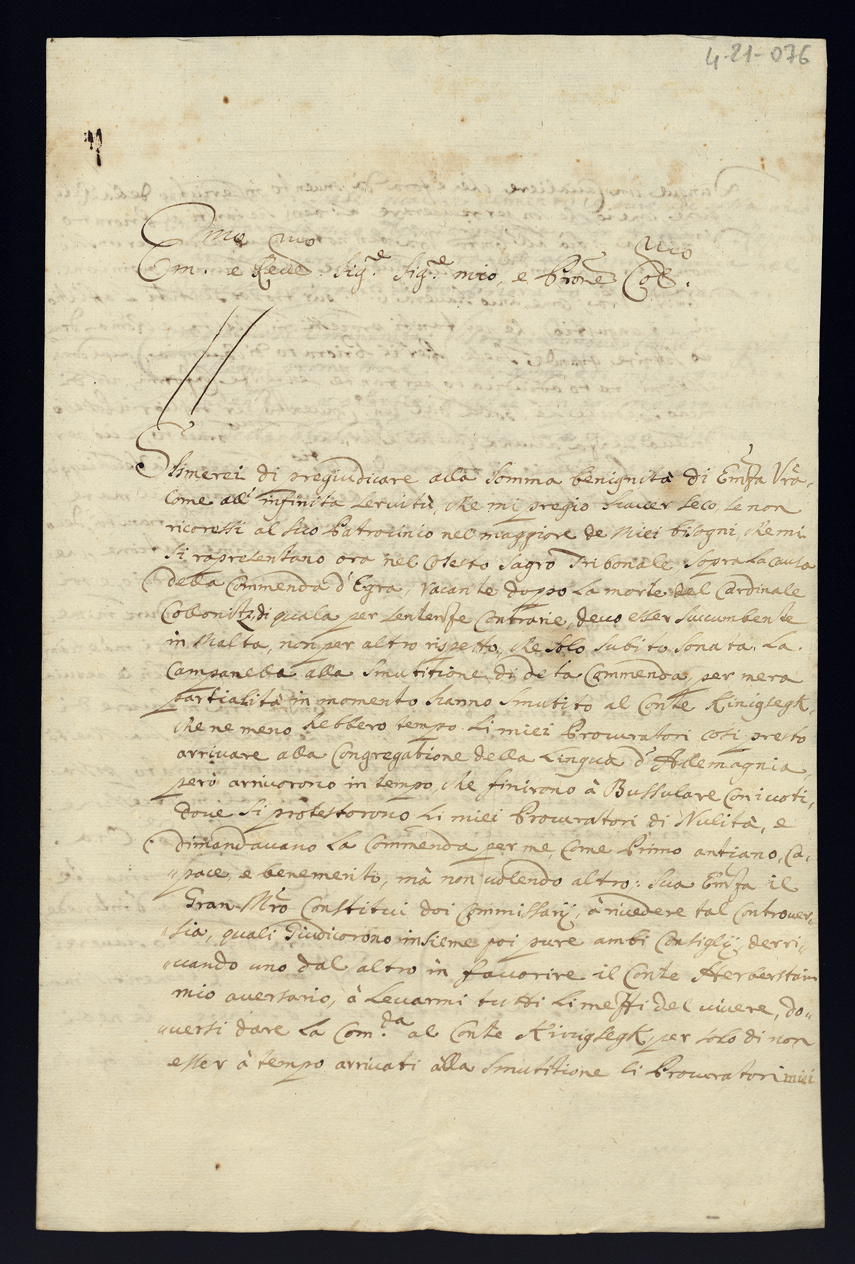 4-21-076
Em.mo e Reved.mo Sig.e Sig.e mio, e Prone Col.mo
Stimerei di pregiudicare alla somma benignità di Em͞za Vr͞a,
Come all' infinita servitù, che mi pregio d'haver seco, se non
ricoressi al suo Patrocinio nel maggiore de Miei bisogni, che mi
si rapresentano ora nel Cotesto Sagro Tribonale, Sopra La causa
della Commenda d'Egra, vacante doppo La morte del Cardinale
Collonitz, di quala per sentenze Contrarie, devo esser succumbente
in Malta, non per altro rispetto, che solo subito sonata La
Campanella alla smutitione di deta Commenda, per mera
partialità in momento hanno smutito al Conte Kinigsegk,
che ne meno hebbero tempo Li miei Procuratori così presto
arrivare alla Congregatione della Lingua d'Allemagnia,
però arrivorono in tempo, che finirono à Bussulare Con i voti,
dove si protestorono Li miei Procuratori di Nulità, e
dimandavano La Commenda per me, Come Primo antiano, Ca-
pace, e benemerito, mà non volendo altro: Sua Em͞za il
Gran M͞ro Constitui doi Commissarij, à rivedere tal Controver-
sia, quali Giudicorono insieme poi pure ambi Consiglij, derri-
vando uno dal altro in favorire il Conte Herberstain
mio aversario, à Levarmi tutti Li mezzi del vivere, do-
versi dare La Com.da al Conte Kinigsegk, per solo di non
esser à tempo arrivati alla smutitione li Procuratori miei